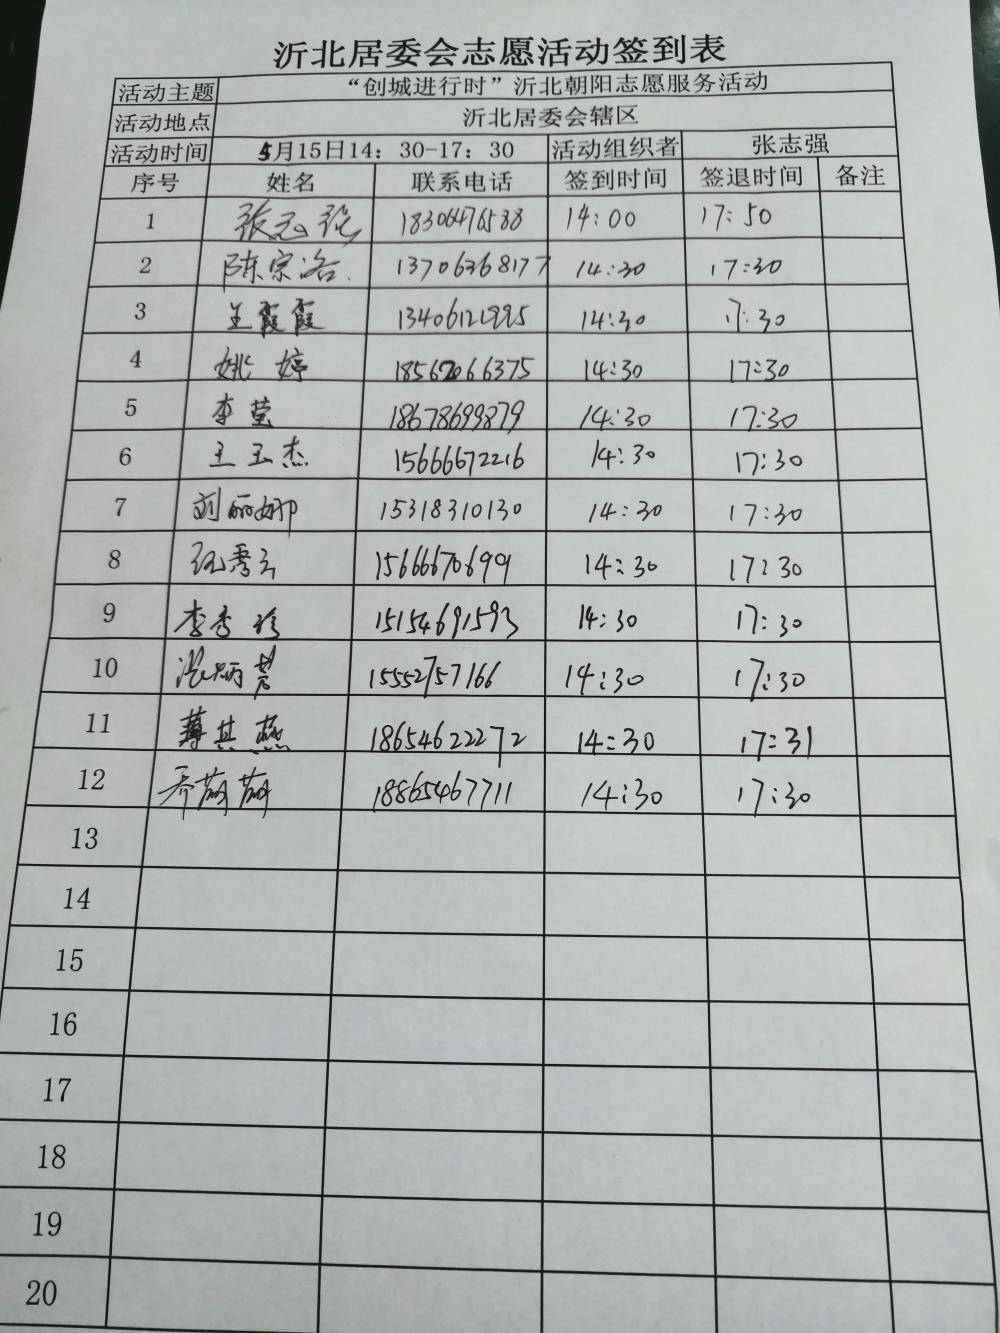 沂北居委会志愿活动签到表
活动主题 “创城进行时”沂北朝阳志愿服务活动
活动地点 沂北居委会辖区
活动时间 5月15日14：30-17：30 活动组织者 张志强
序号 姓名 联系电话 签到时间 签退时间 备注
1 张志强 18306476538 14:00 17:50
2 陈宗洛 13706368177 14:30 17:30
3 王霞霞 13406121995 14:30 17:30
4 姚婷 18562066375 14:30 17:30
5 李莹 18678699879 14:30 17:30
6 王玉杰 15666672216 14:30 17:30
7 刘丽娜 15318310130 14:30 17:30
8 15666670699 14:30 17:30
9 李秀珍 15154691593 14:30 17:30
10 15552757166 14:30 17:30
11 薄其燕 18654622272 14:30 17:31
12 乔萌萌 18865467711 14:30 17:30
13
14
15
16
17
18
19
20